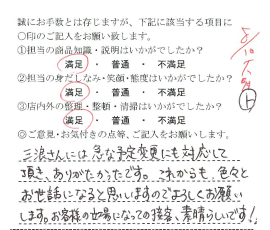 誠にお手数とは存じますが、下記に該当する項目に
〇印のご記入をお願い致します。
①担当の商品知識・説明はいかがでしたか？
満足 ・ 普通 ・ 不満足
②担当の身だしなみ・笑顔・態度はいかがでしたか？
満足 ・ 普通 ・ 不満足
③店内外の整理・整頓・清掃はいかがでしたか？
満足 ・ 普通 ・ 不満足
◎ご意見・お気付きの点等、ご記入をお願いします。
三浪さんには急な予定変更にも対応して
頂き、ありがたかったです。これからも、色々と
お世話になると思いしますのでよろしくお願い
します。お客様の立場になっての接客、素晴らしいです！
5/10